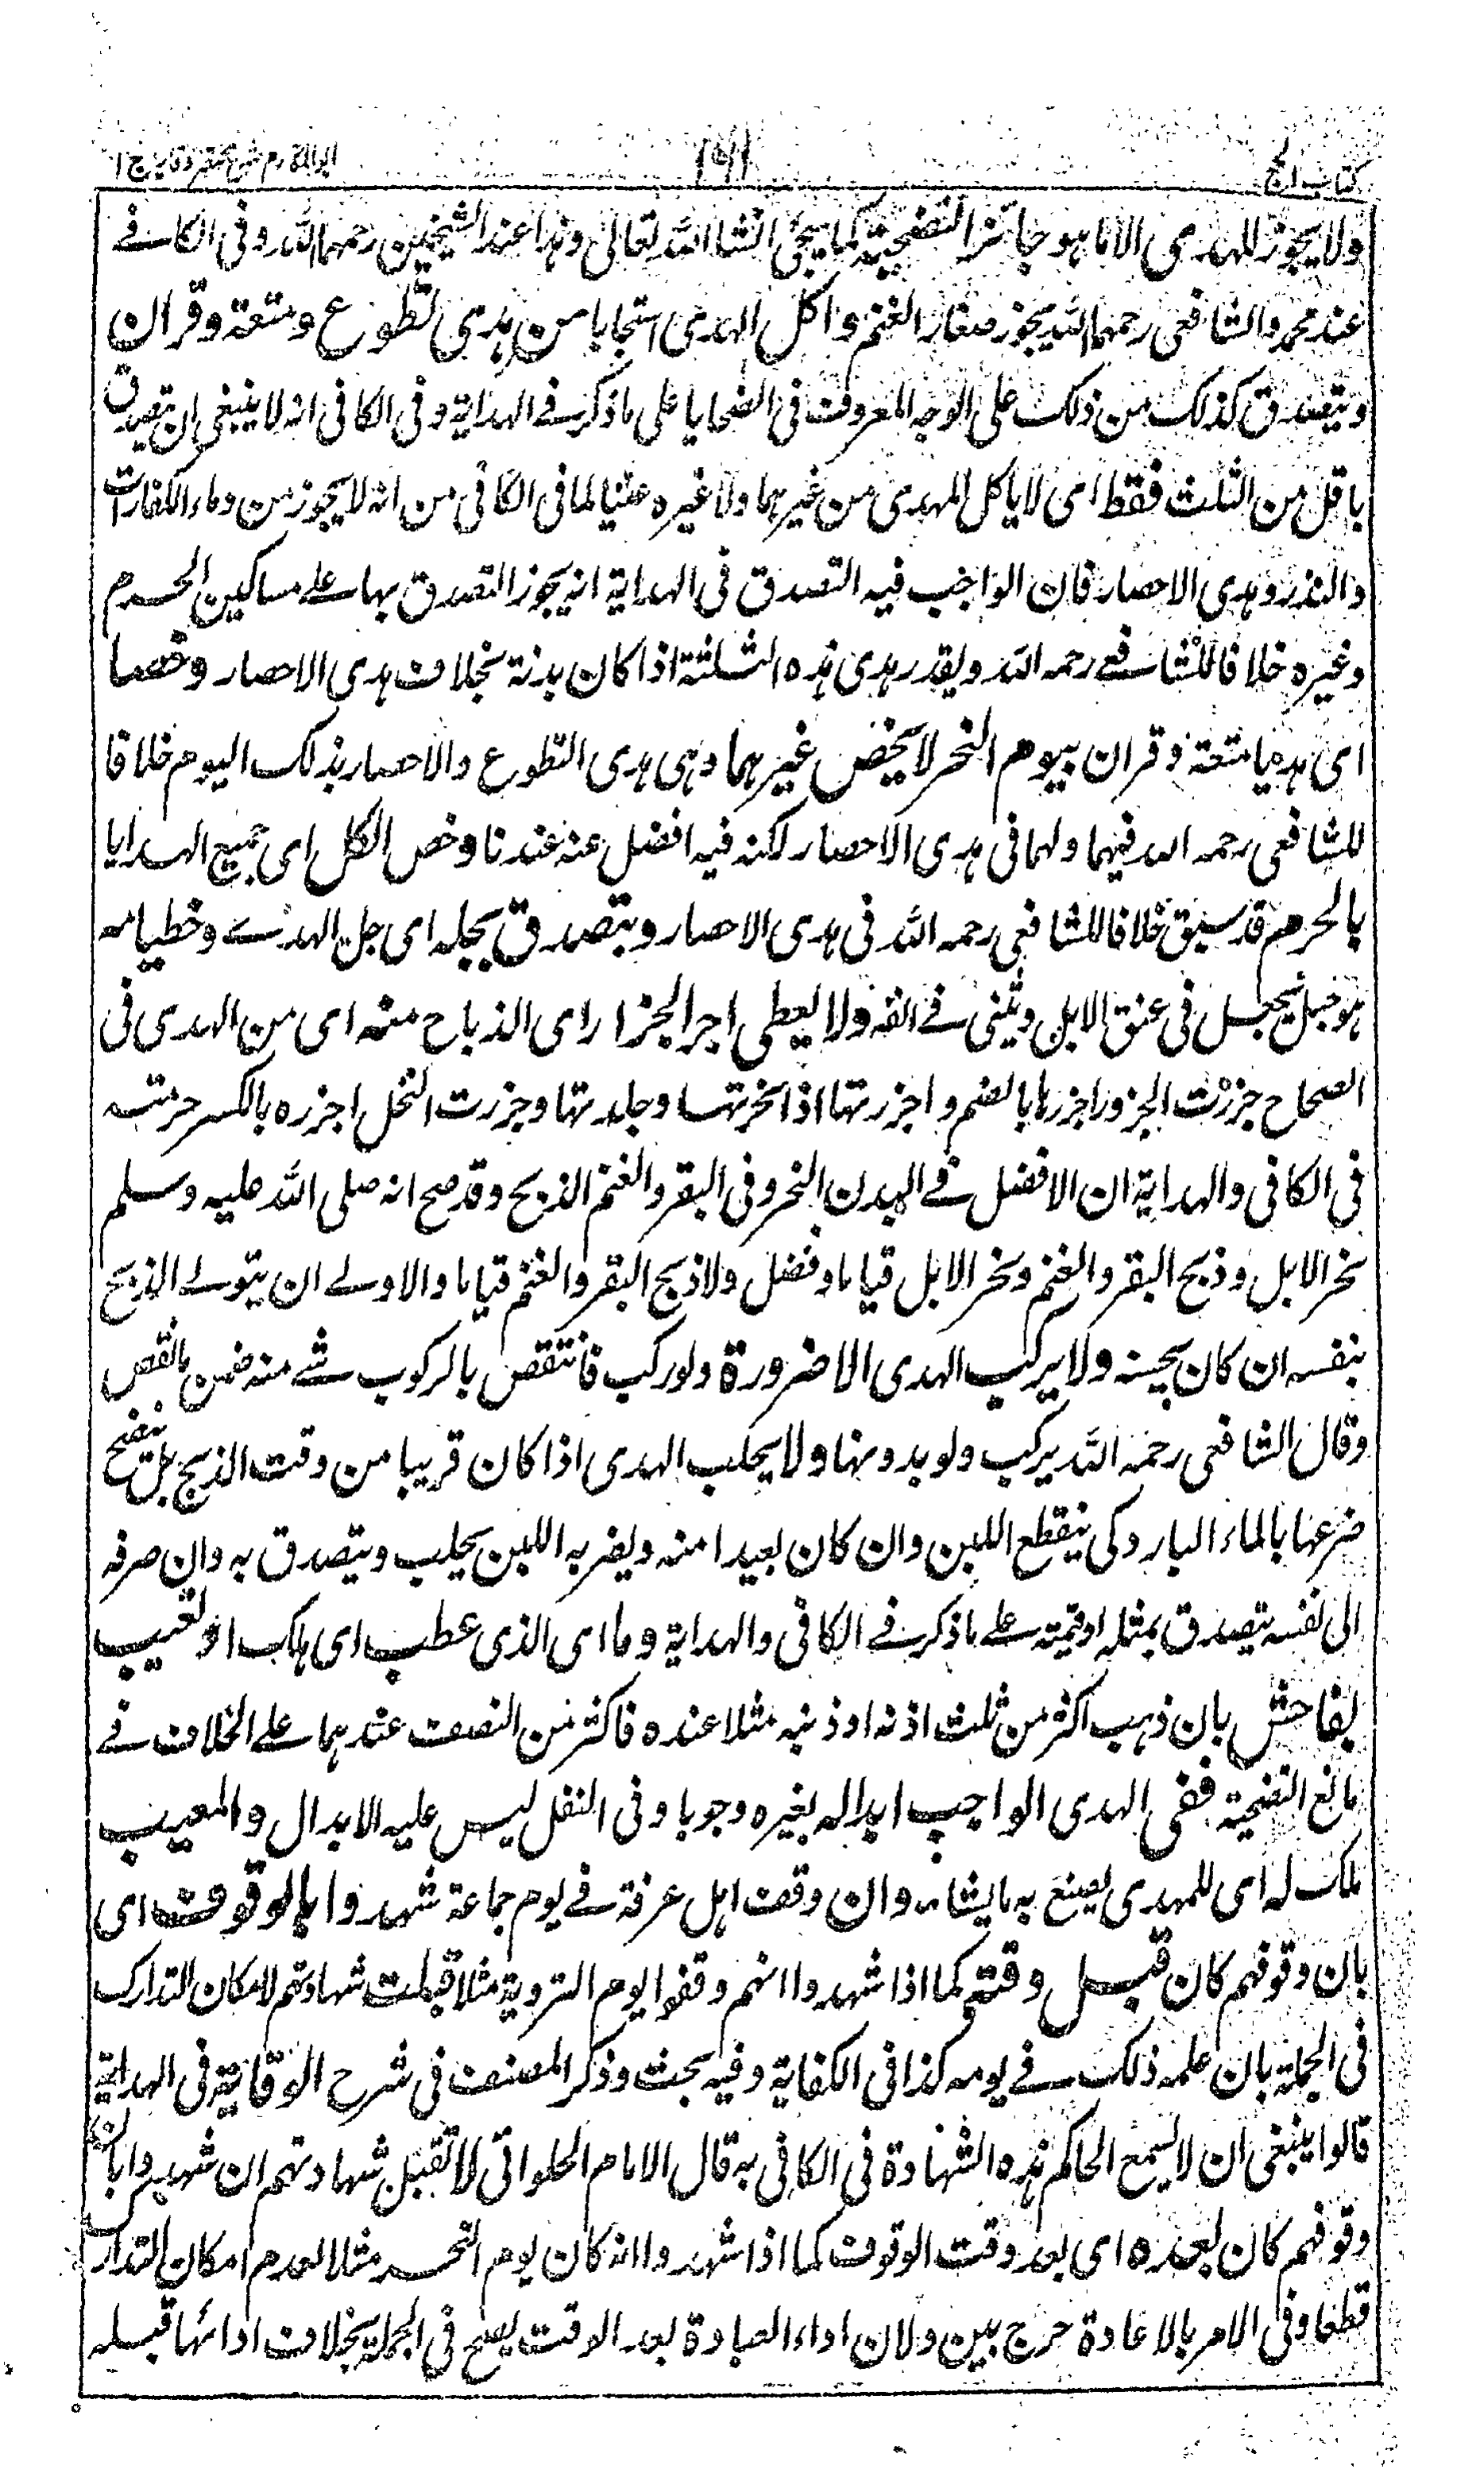 كتاب الحج
ابو المكارم شرح مختصر وقايه ج ا
ولا يجوز للهدى الا ما هو جائز التضحية كما يجئ انشاء الله تعالى وهذا عند الشيخين رحمهما الله وفى الكافي
عند محمد والشافعى رحمهما الله يجوز صغار الغنم واكل الهدى استحبابا من هدى تطوع ومتعة وقران
ويتصدق كذلك من ذلك على الوجه المعروف فى الضحايا على ما ذكر في الهداية وفى الكافى انه لا ينبغى ان يتصدق
باقل من الثلث فقط اى لا ياكل المهدى من غيرهما ولا غيره غنيا لما فى الكافى من انه لا يجوز من دماء الكفارات
والنذر وهدى الاحصار فان الواجب فيه التصدق فى الهداية انه يجوز التصدق بها على مساكين الحرم
وغيره خلافا للشافعي رحمه الله ويقلد هدى هذه الثلثة اذا كان بدنة بخلاف هدى الاحصار وخصا
اى هديا متعة وقران بيوم النحر لا يخص غيرهما وهى هدى التطوع والاحصار بذلك اليوم خلافا
للشافعى رحمه الله فيهما ولهما فى هدى الاحصار لكنه فيه افضل عنه عندنا وخص الكل اى جميع الهدايا
بالحرم قد سبق خلافا للشافعى رحمه الله فى هدى الاحصار ويتصدق بجله اى جل الهدي وخطامه
هو حبل يجعل فى عنق الابل ويثنى في انفه ولا يعطى اجر الجزار اى الذباح منه اى من الهدى فى
الصحاح جزرت الجزور اجزرها بالضم واجزرتها اذا نحرتها وجلدتها وجزرت النخل اجزره بالكسر حرمته
فى الكافى والهداية ان الافضل في البدن النحر وفى البقر والغنم الذبح وقد صح انه صلى الله عليه وسلم
نحر الابل وذبح البقر والغنم ونحر الابل قياما وفضل ولا ذبح البقر والغنم قياما والاولے ان يتولے الذبح
بنفسه ان كان يحسنه ولا يركب الهدى الا ضرورة ولو ركب فانتقص بالركوب شے منه ضمن ما نقص
وقال الشافعى رحمه الله يركب ولو بدونها ولا يحلب الهدى اذا كان قريبا من وقت الذبح بل ينضح
ضرعها بالماء البارد كى ينقطع اللبن وان كان بعيدا منه ويضر به اللبن يحلب ويتصدق به وان صرفه
الى نفسه يتصدق بمثله او قيمته على ما ذكر في الكافى والهداية وما اى الذى عطب اى هلك او تعيب
بفاحش بان ذهب اكثر من ثلث اذنه او ذنبه مثلا عنده فاكثر من النصف عندهما على الخلاف في
مانع التضحية ففى الهدى الواجب ابداله بغيره وجوبا وفى النفل ليس عليه الابدال والمعيب
ملك له اى للمهدى يصنع به ما يشاء وان وقف اهل عرفة في يوم جماعة شهدوا بالوقوف اى
بان وقوفهم كان قبل وقته كما اذا شهدوا انهم وقفوا يوم التروية مثلا قبلت شهادتهم لامكان التدارك
فى الجملة بان علمه ذلك في يومه كذا فى الكفاية وفيه بحث وذكر المصنف فى شرح الوقاية فى الهداية
قالوا ينبغى ان لا يسمع الحاكم هذه الشهادة فى الكافى به قال الامام الحلوانى لا تقبل شهادتهم ان شهدوا بان
وقوفهم كان بعده اى بعد وقت الوقوف كما اذا شهدوا انه كان يوم النحر مثلا لعدم امكان التدارك
قطعا وفى الامر بالاعادة حرج بين ولان اداء العبادة بعد الوقت يصح فى الجملة بخلاف ادائها قبله